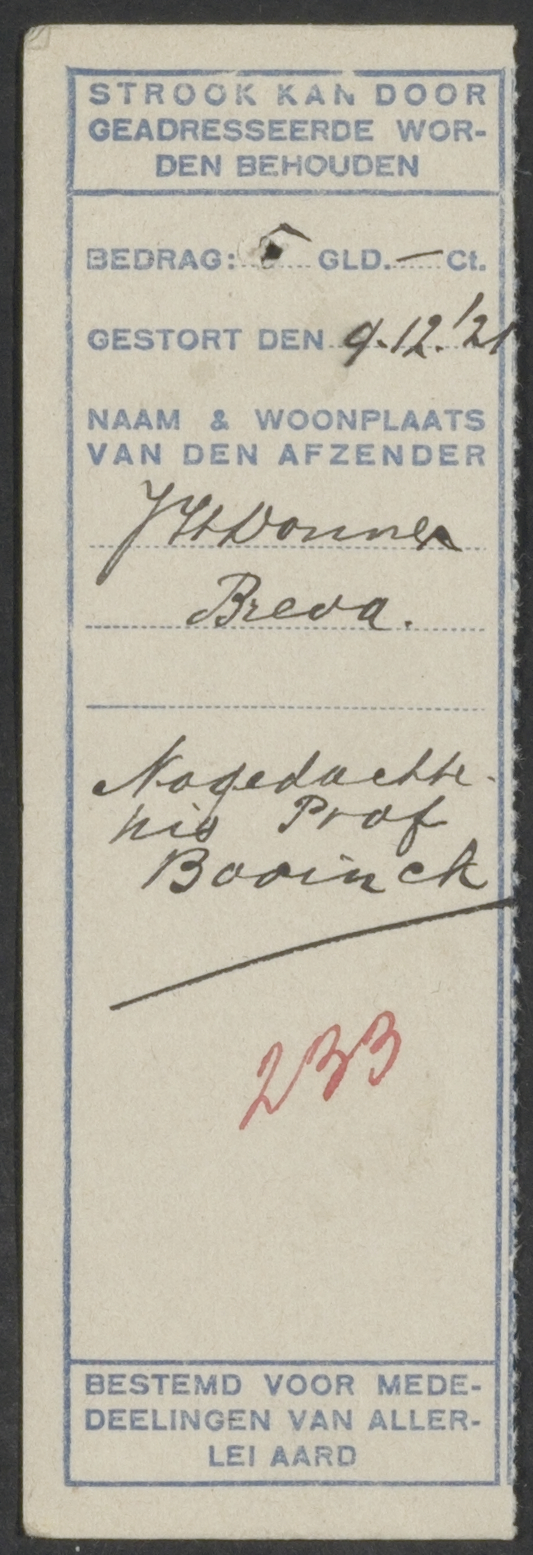 STROOK KAN DOOR
GEADRESSEERDE WOR-
DEN BEHOUDEN
BEDRAG: 5 GLD. — Ct.
GESTORT DEN 9.12.'21
NAAM & WOONPLAATS
VAN DEN AFZENDER
Donner
Breda.
Nagedachte-
nis Prof
Bavinck
233
BESTEMD VOOR MEDE-
DEELINGEN VAN ALLER-
LEI AARD